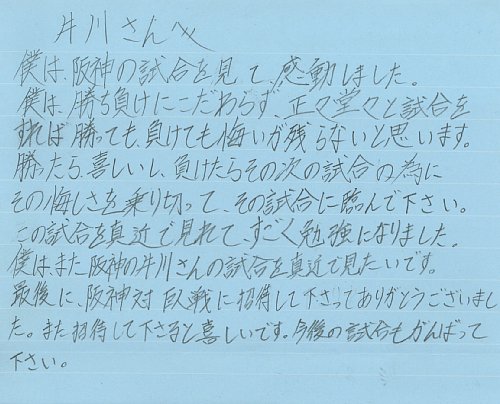 井川さんへ
僕は、阪神の試合を見て、感動しました。
僕は、勝ち負けにこだわらず、正々堂々と試合を
すれば勝っても、負けても悔いが残らないと思います。
勝ったら、喜しいし、負けたらその次の試合の為に
その悔しさを乗り切って、その試合に臨んで下さい。
この試合を真近で見れて、すごく勉強になりました。
僕は、また阪神の井川さんの試合を真近で見たいです。
最後に、阪神対巨人戦に招待して下さってありがとうございまし
た。また招待して下さると喜しいです。今後の試合もがんばって
下さい。